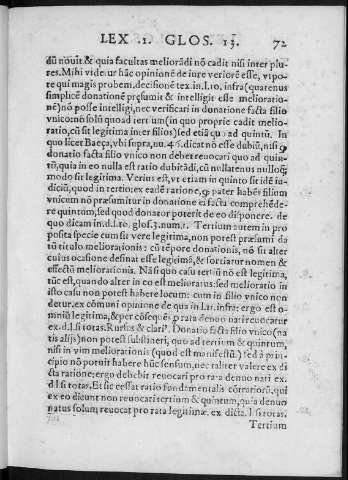 LEX .1. GLOS. 13. 72
dũ nouit. & quia facultas meliorãdi nõ cadit nisi inter plu-
res. Mihi videtur hãc opinionẽ de iure veriorẽ esse, vt po-
te qui magis probem, decisionẽ tex. in l. 10. infra (quatenus
simplicẽ donationẽ præsumit & intelligit esse melioratio-
nẽ) nõ posse intelligi, nec verificari in donatione facta filio
vnico: nõ solũ quo ad tertium (in quo proprie cadit melio-
ratio, cũ sit legitima inter filios) sed etiã quo ad quintũ. In
quo licet Baeça, vbi supra, nu. 46. dicat nõ esse dubiũ, nisi
donatio facta filio vnico non debet reuocari quo ad quin-
tũ, quia in eo nulla est ratio dubitãdi, cũ nullatenus nulloq;
modo sit legitima. Verius est, vt etiam in quinto sit idẽ iu-
diciũ, quod in tertio: ex eadẽ ratione, pater habẽs filium
vnicum nõ præsumitur in donatione ex facta comprehẽde-
re quintum, sed quod donator poterit de eo disponere. de
quo dicam in. d. l. 10. glos. 3. num. 1. Tertium autem in pro
posita specie cum sit vere legitima, non potest præsumi da
tũ titulo meliorationis: cũ tẽpore donationis, nõ sit alter
cuius occasione desinat esse legitimã, & sortiatur nomen &
effectũ meliorationis. Nã si quo casu tertiũ nõ est legitima,
tũc est, quando alter in eo est melioratus: sed melioratio in
isto casu non potest habere locum: cum in filio vnico non
detur. ex cõmuni opinione de qua in l. 21. infra: ergo est o-
mnis legitima, & per cõsequẽs p rata denuo nati reuocatur
ex. d. l. si totas. Rursus & clari⁹. Donatio facta filio vnico (na
tis alijs) non potest sustineri, quo ad tertium & quintum,
nisi in vim meliorationis (quod est manifestũ.) sed à prin-
cipio nõ potuit habere hũc sensum, nec taliter valere ex di
cta ratione; ergo debebit reuocari pro rata denuo nati ex.
d. l. si totas. Et sic cessat ratio fundamentalis cõtrariorũ, qui
ex eo dicunt non reuocari tertium & quintum, quia denuo
natus solum reuocat pro rata legitimæ. ex dicta. l. si totas.
Tertium